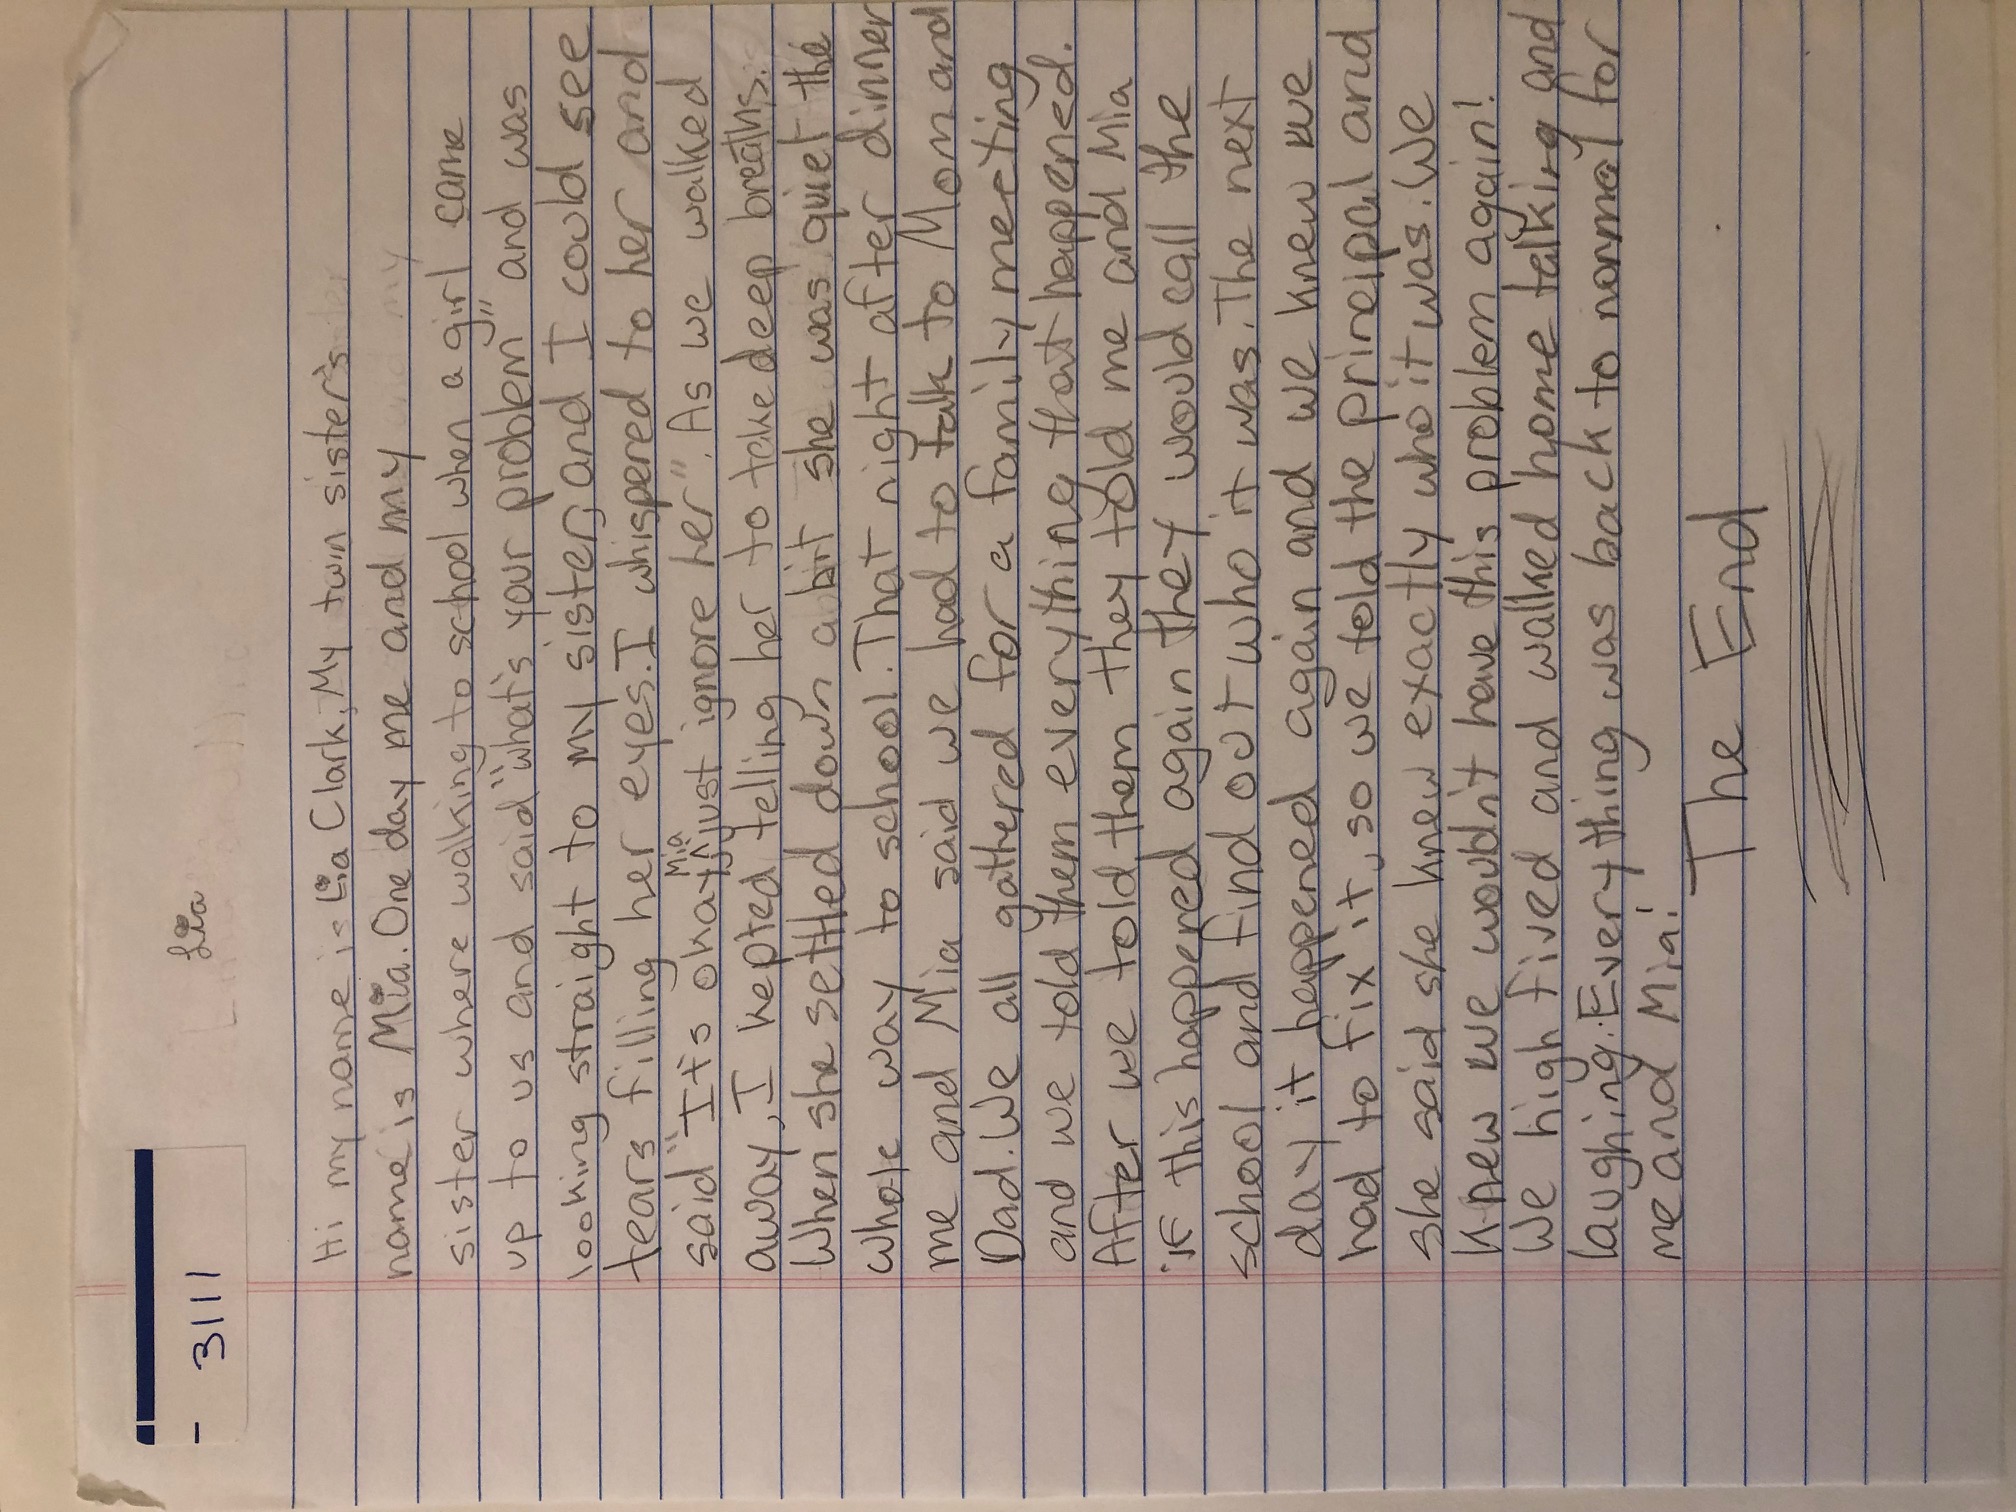 3111
Lia
Hi my name is Lia Clark, My twin sister's
name is Mia. One day me and my
sister where walking to school when a girl came
up to us and said "what's your problem" and was
looking straight to my sister, and I could see
tears filling her eyes. I whispered to her and
said "It's okay, Mia, just ignore her". As we walked
away, I kepted telling her to take deep breaths.
When she settled down a bit she was quiet the
whole way to school. That night after dinner
me and Mia said we had to talk to Mom and
Dad. We all gathered for a family meeting
and we told them everything that happened.
After we told, them they told me and Mia
if this happened again they would call the
school and find out who it was. The next
day it happened again and we knew we
had to fix it, so we told the principal and
she said she knew exactly who it was. We
knew we wouldn't have this problem again!
We high fived and walked home talking and
laughing. Everything was back to normal for
me and Mia!
The End